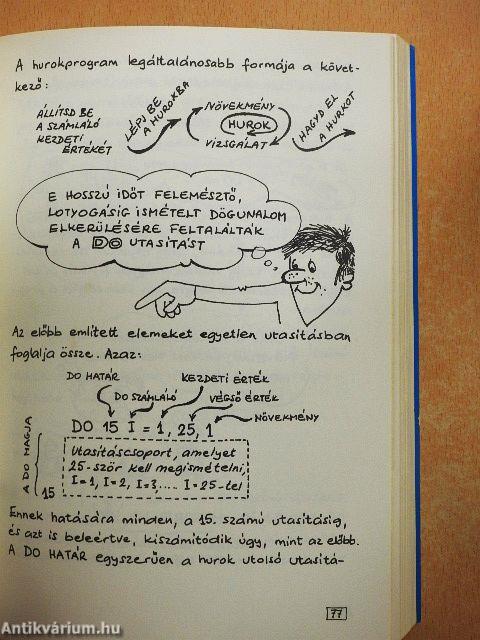 A hurokprogram legáltalánosabb formája a követ-
kező:
ÁLLÍTSD BE
A SZÁMLÁLÓ
KEZDETI
ÉRTÉKÉT
LÉPJ BE
A HUROKBA
NÖVEKMÉNY
HUROK
VIZSGÁLAT
HAGYD EL
A HURKOT
E HOSSZÚ IDŐT FELEMÉSZTŐ,
LOTYOGÁSIG ISMÉTELT DÖGUNALOM
ELKERÜLÉSÉRE FELTALÁLTÁK
A DO UTASÍTÁST
Az előbb említett elemeket egyetlen utasításban
foglalja össze. Azaz:
DO HATÁR
KEZDETI ÉRTÉK
DO SZÁMLÁLÓ
VÉGSŐ ÉRTÉK
NÖVEKMÉNY
DO 15 I = 1, 25, 1
A DO MAGJA
Utasításcsoport, amelyet
25-ször kell megismételni,
I=1, I=2, I=3,.... I=25-tel
15
Ennek hatására minden, a 15. számú utasításig,
és azt is beleértve, kiszámítódik úgy, mint az előbb.
A DO HATÁR egyszerűen a hurok utolsó utasítá-
77
Antikvárium.hu